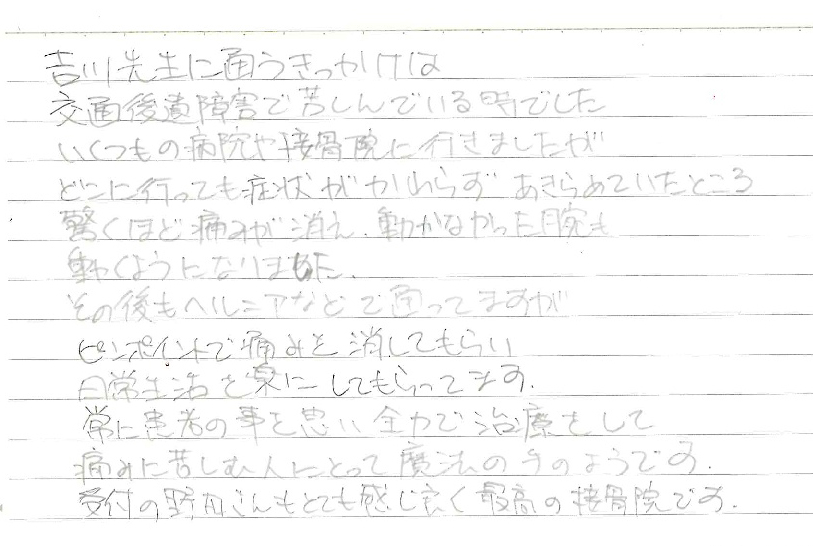 吉川先生に通うきっかけは
交通後遺障害で苦しんでいる時でした
いくつもの病院や接骨院に行きましたが
どこに行っても症状がかわらず あきらめていたところ
驚くほど痛みが消え、動かなかった腕も
動くようになりました。
その後もヘルニアなどで通ってますが
ピンポイントで痛みを消してもらい
日常生活を楽にしてもらってます。
常に患者の事を思い全力で治療をして
痛みに苦しむ人にとって魔法の手のようです。
受付の野田さんもとても感じ良く最高の接骨院です。